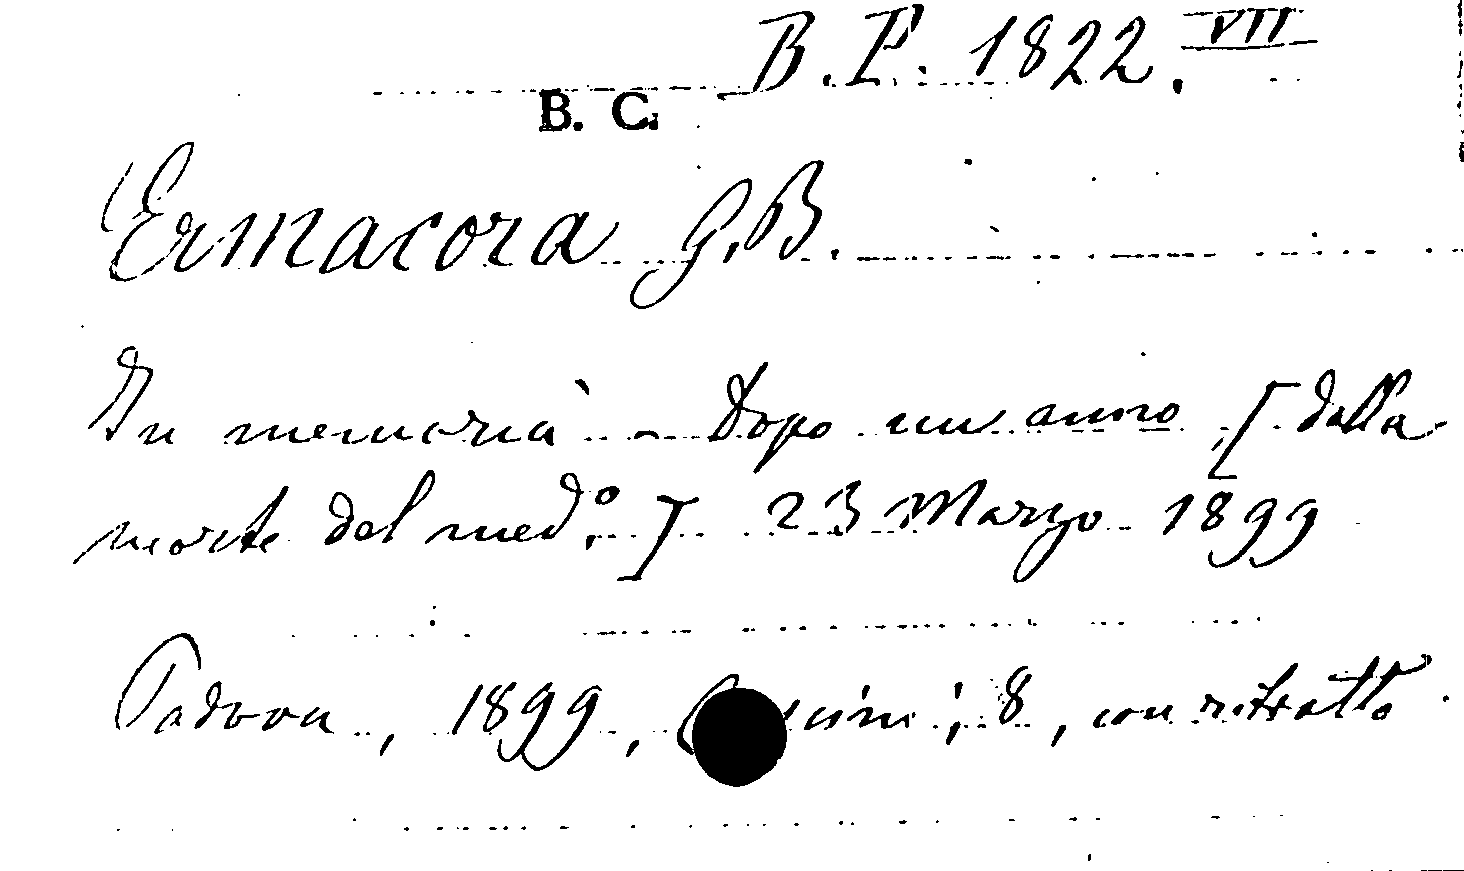 B. P. 1822. VII
B. C.
Ermacora G. B.
In memoria - Dopo un anno [dalla
morte del med.º] 23 Marzo 1899
Padova, 1899, 8, con ritratto